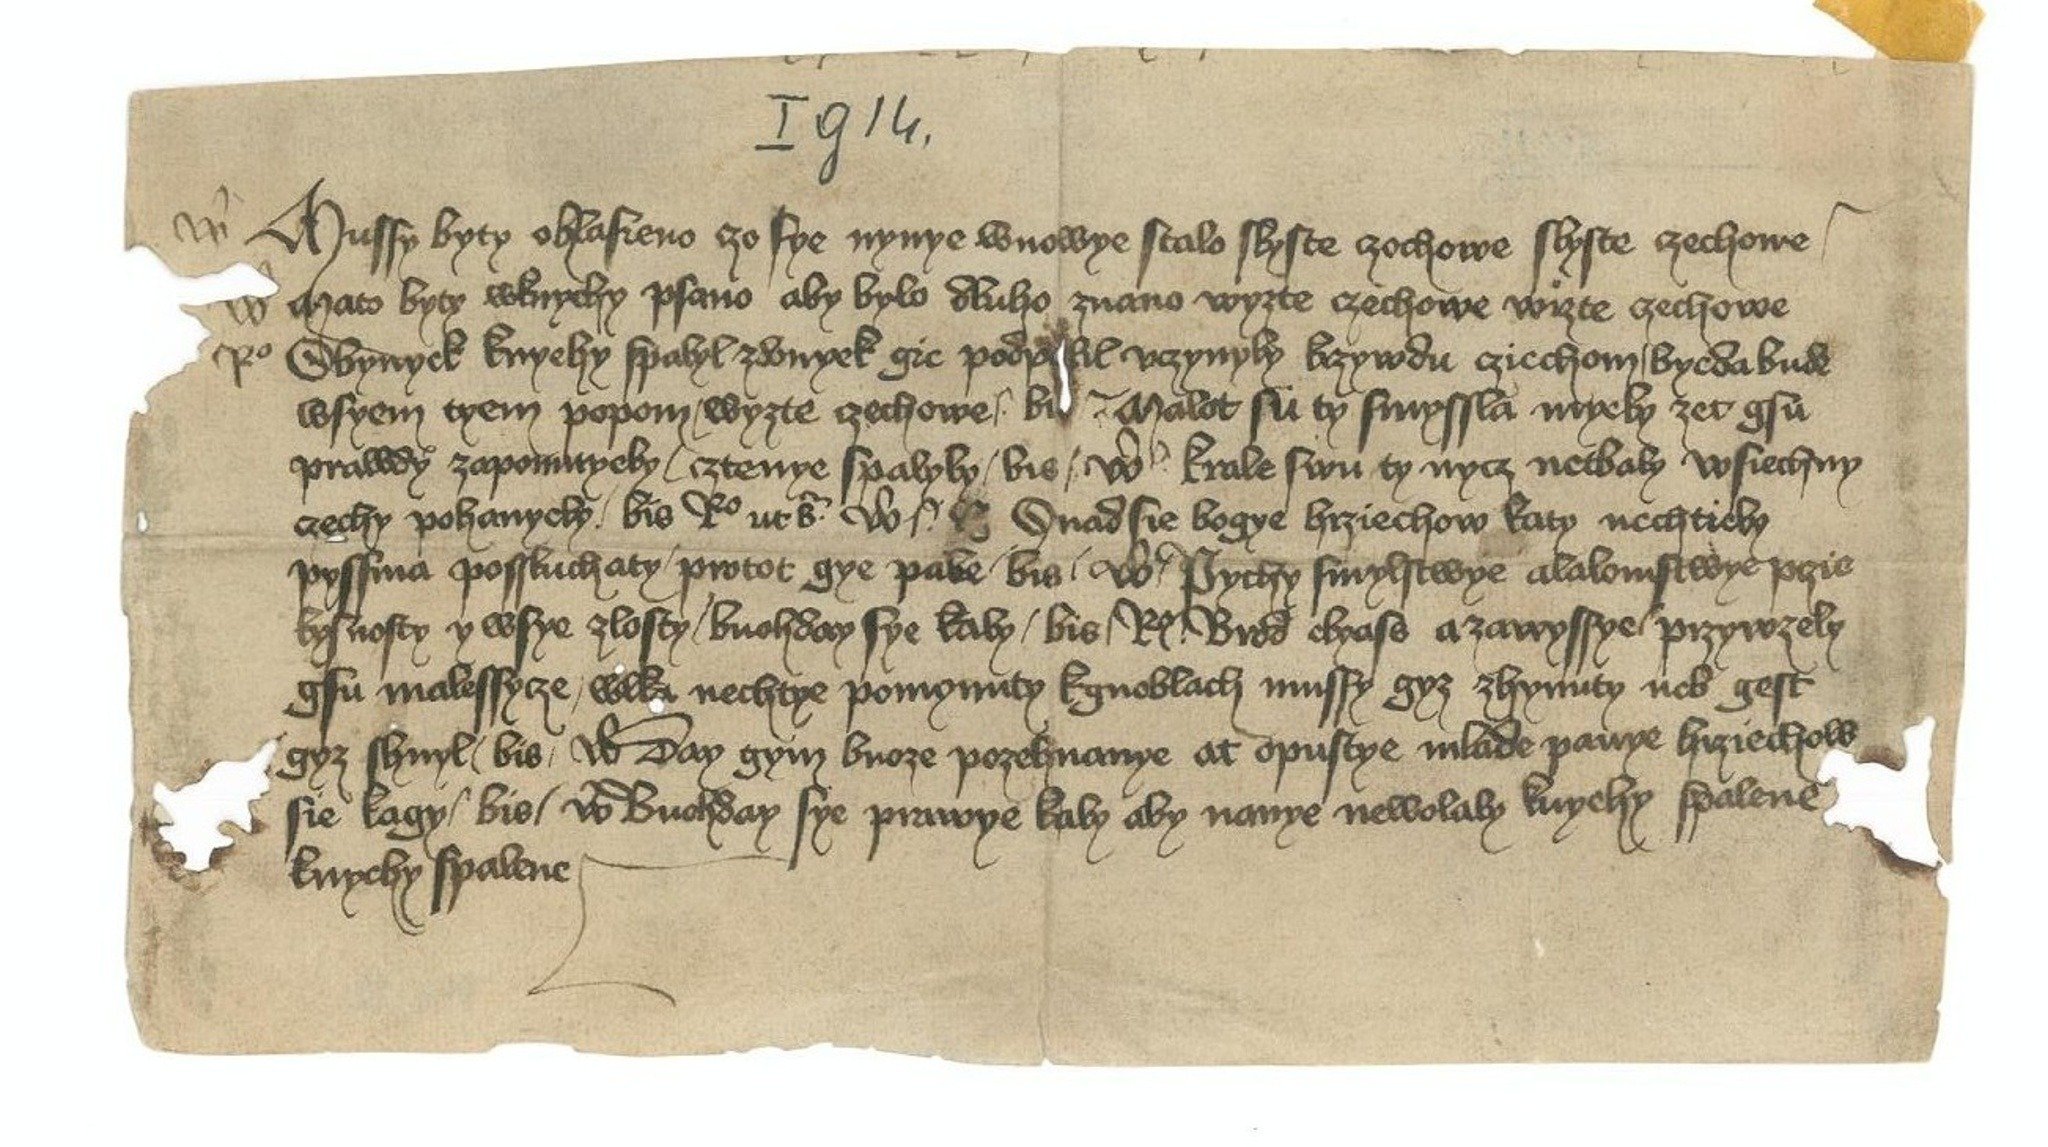 I g 14.
Mussy byty ohlasieno czo sye nynye wnowye stalo slyste czechowe slyste czechowe
Mato byty wknyehy psano aby bylo dluho znano wyzte czechowe wizte czechowe
Rº Sbynyek knyehy spalyl zdenyek gie podpalil vczynyly krzywdu cziechom byeda bude
wsyem tyem popom / wyzte czechowe / bis Malot su ty smyssla myely zet gsu
prawdy zapomnyely / cztenye spalyly / bis / krale swu ty nycz netbaly wsiechny
czechy pohanyely / bis Rº ut sᵃ Snad sie bogye hrziechow katy nechtiely
pyssma possluchaty / protot gye pale / bis / Pychy smylstwye alakomstwye
y wsye zlosty / buohday sye kaly / bis / Brod a zawyssye / przywzely
gsu malessycze / wlka nechtye pomynuty kgnoblach mussy gyz zhynuty neb gest
gyz shnyl / bis / Day gym buoze pozehnanye at opustye mlade panye hrziechow
sie kagy / bis / Buohday sye prawye kaly aby nanye newolaly knyehy spalene
knyehy spalene